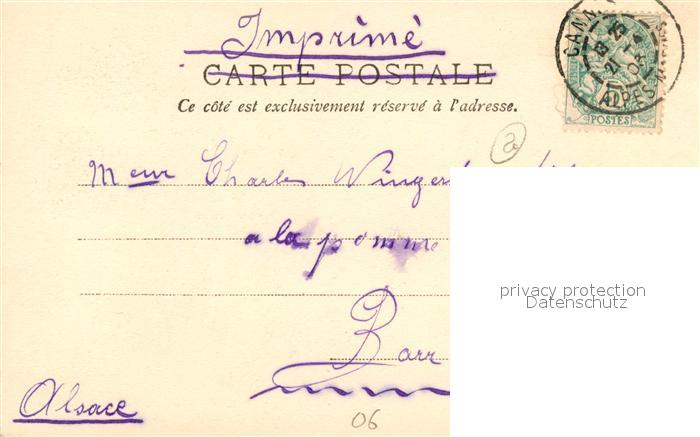 Imprimé
CARTE POSTALE
Ce côté est exclusivement réservé à l'adresse.
CANN
ALPES
POSTES
Meur Charles
a la pomme
Barr
Alsace
06
privacy protection
Datenschutz